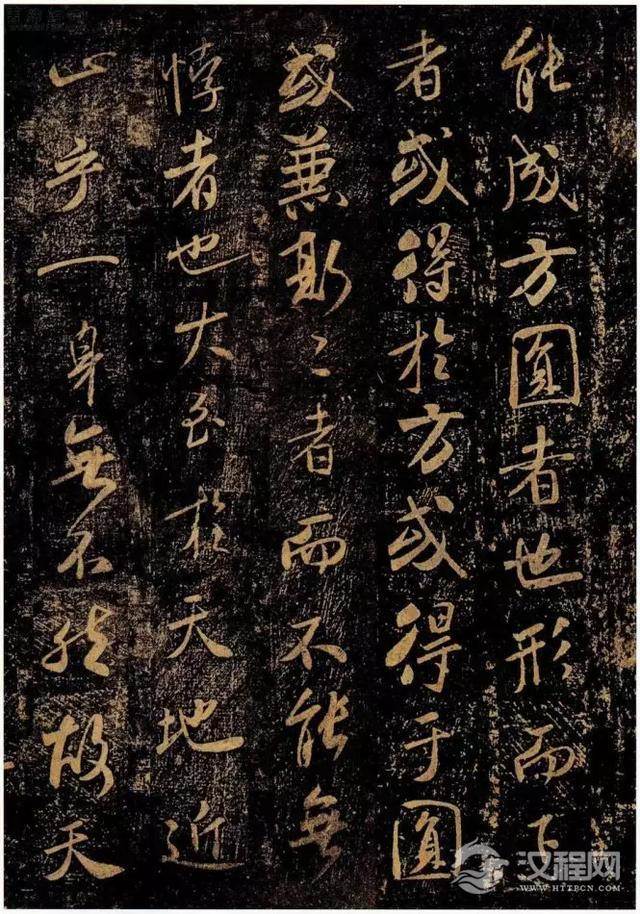 能成方圓者也形而下
者或得於方或得于圓
或兼斯二者而不能無
悖者也大至於天地近
止乎一身無不然故天
汉程网
WWW.HTTPCN.COM